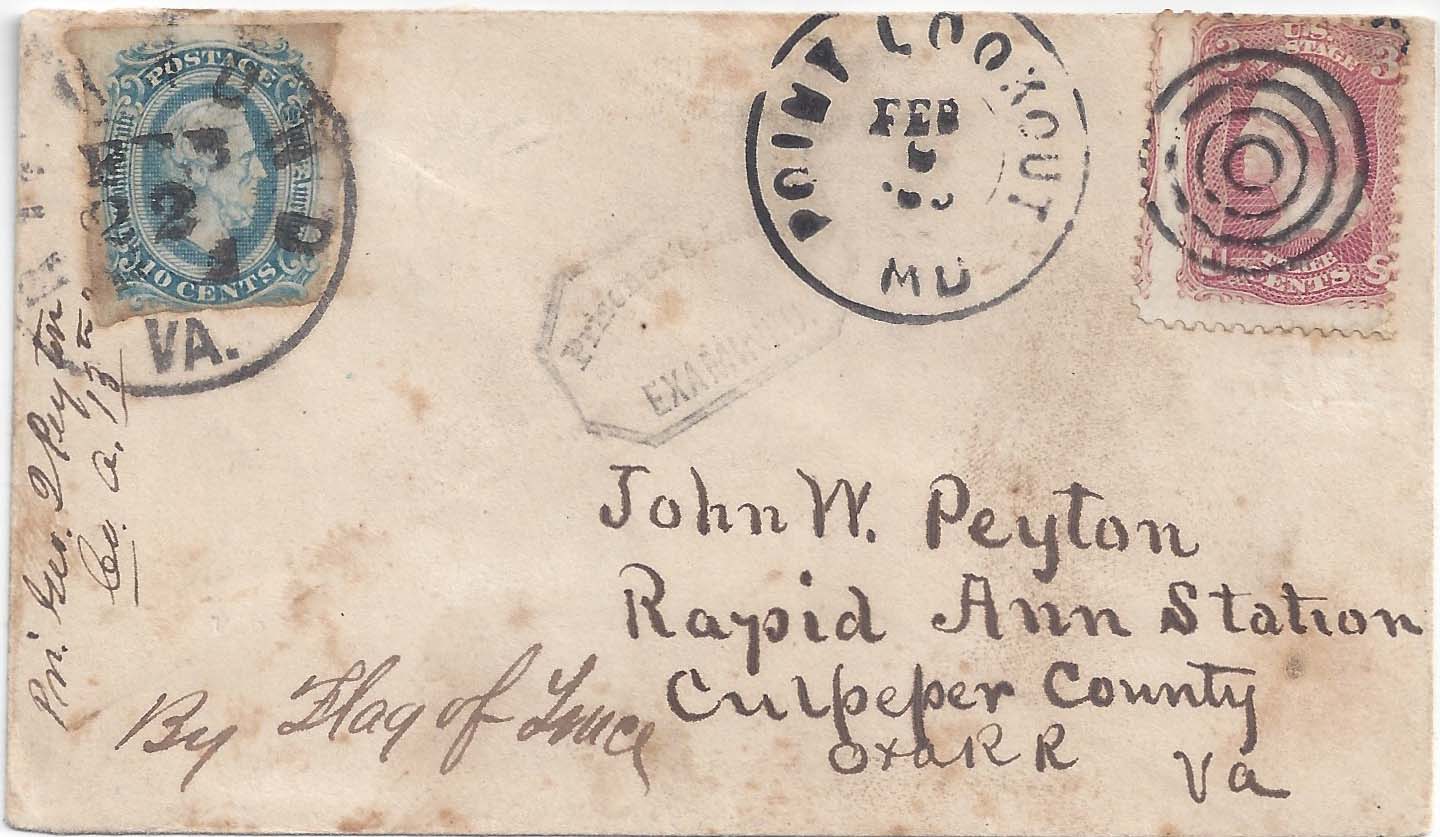 POSTAGE
10 CENTS
VA.
POINT LOOKOUT
FEB
MD
U.S.
3
CENTS
U S
EXAMINED
Pri. Geo. Q Peyton
Co. A. 13 Va.
John W. Peyton
Rapid Ann Station
Culpeper County
O & A R R Va
By Flag of Truce